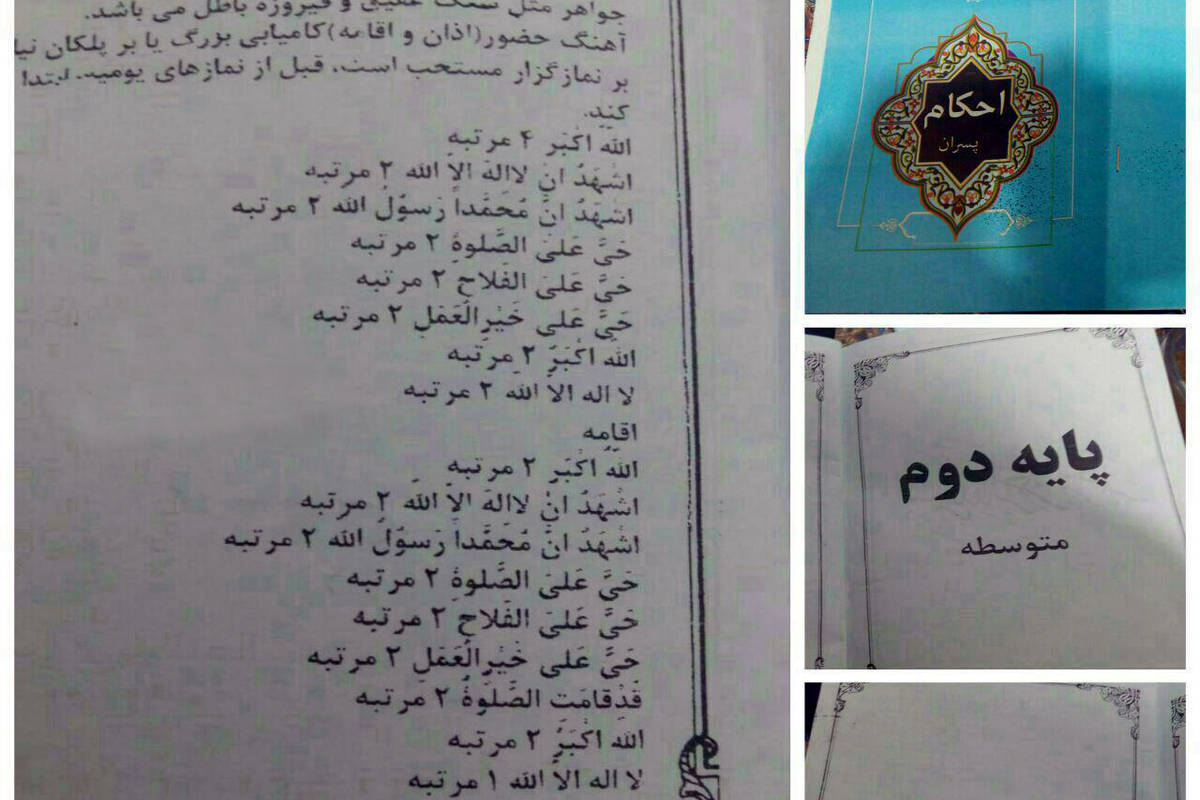 جواهر مثل سنگ عقیق و فیروزه باطل می باشد.
آهنگ حضور(اذان و اقامه)کامیابی بزرگ یا بر پلکان نیا
بر نمازگزار مستحب است، قبل از نمازهای یومیه، ابتدا
کند.
الله اَکْبَر ۴ مرتبه
اَشْهَدُ اَنْ لااِلهَ اِلاَّ الله ۲ مرتبه
اَشْهَدُ اَنَّ مُحَمَّداً رَسوُلُ الله ۲ مرتبه
حَیَّ عَلیَ الصَّلوةِ ۲ مرتبه
حَیَّ عَلیَ الفَلاحِ ۲ مرتبه
حَیَّ عَلی خَیْرِالْعَمَلِ ۲ مرتبه
الله اَکْبَرُ ۲ مرتبه
لا اله الاّ الله ۲ مرتبه
اقامه
الله اَکْبَر ۲ مرتبه
اَشْهَدُ اَنْ لااِلهَ اِلاَّ الله ۲ مرتبه
اَشْهَدُ اَنَّ مُحَمَّداً رَسوُلُ الله ۲ مرتبه
حَیَّ عَلیَ الصَّلوةِ ۲ مرتبه
حَیَّ عَلیَ الفَلاحِ ۲ مرتبه
حَیَّ عَلی خَیْرِالْعَمَلِ ۲ مرتبه
قَدْقامَت الصَّلَوةُ ۲ مرتبه
الله اَکْبَرُ ۲ مرتبه
لا اله الاّ الله ۱ مرتبه
احکام
پسران
پایه دوم
متوسطه